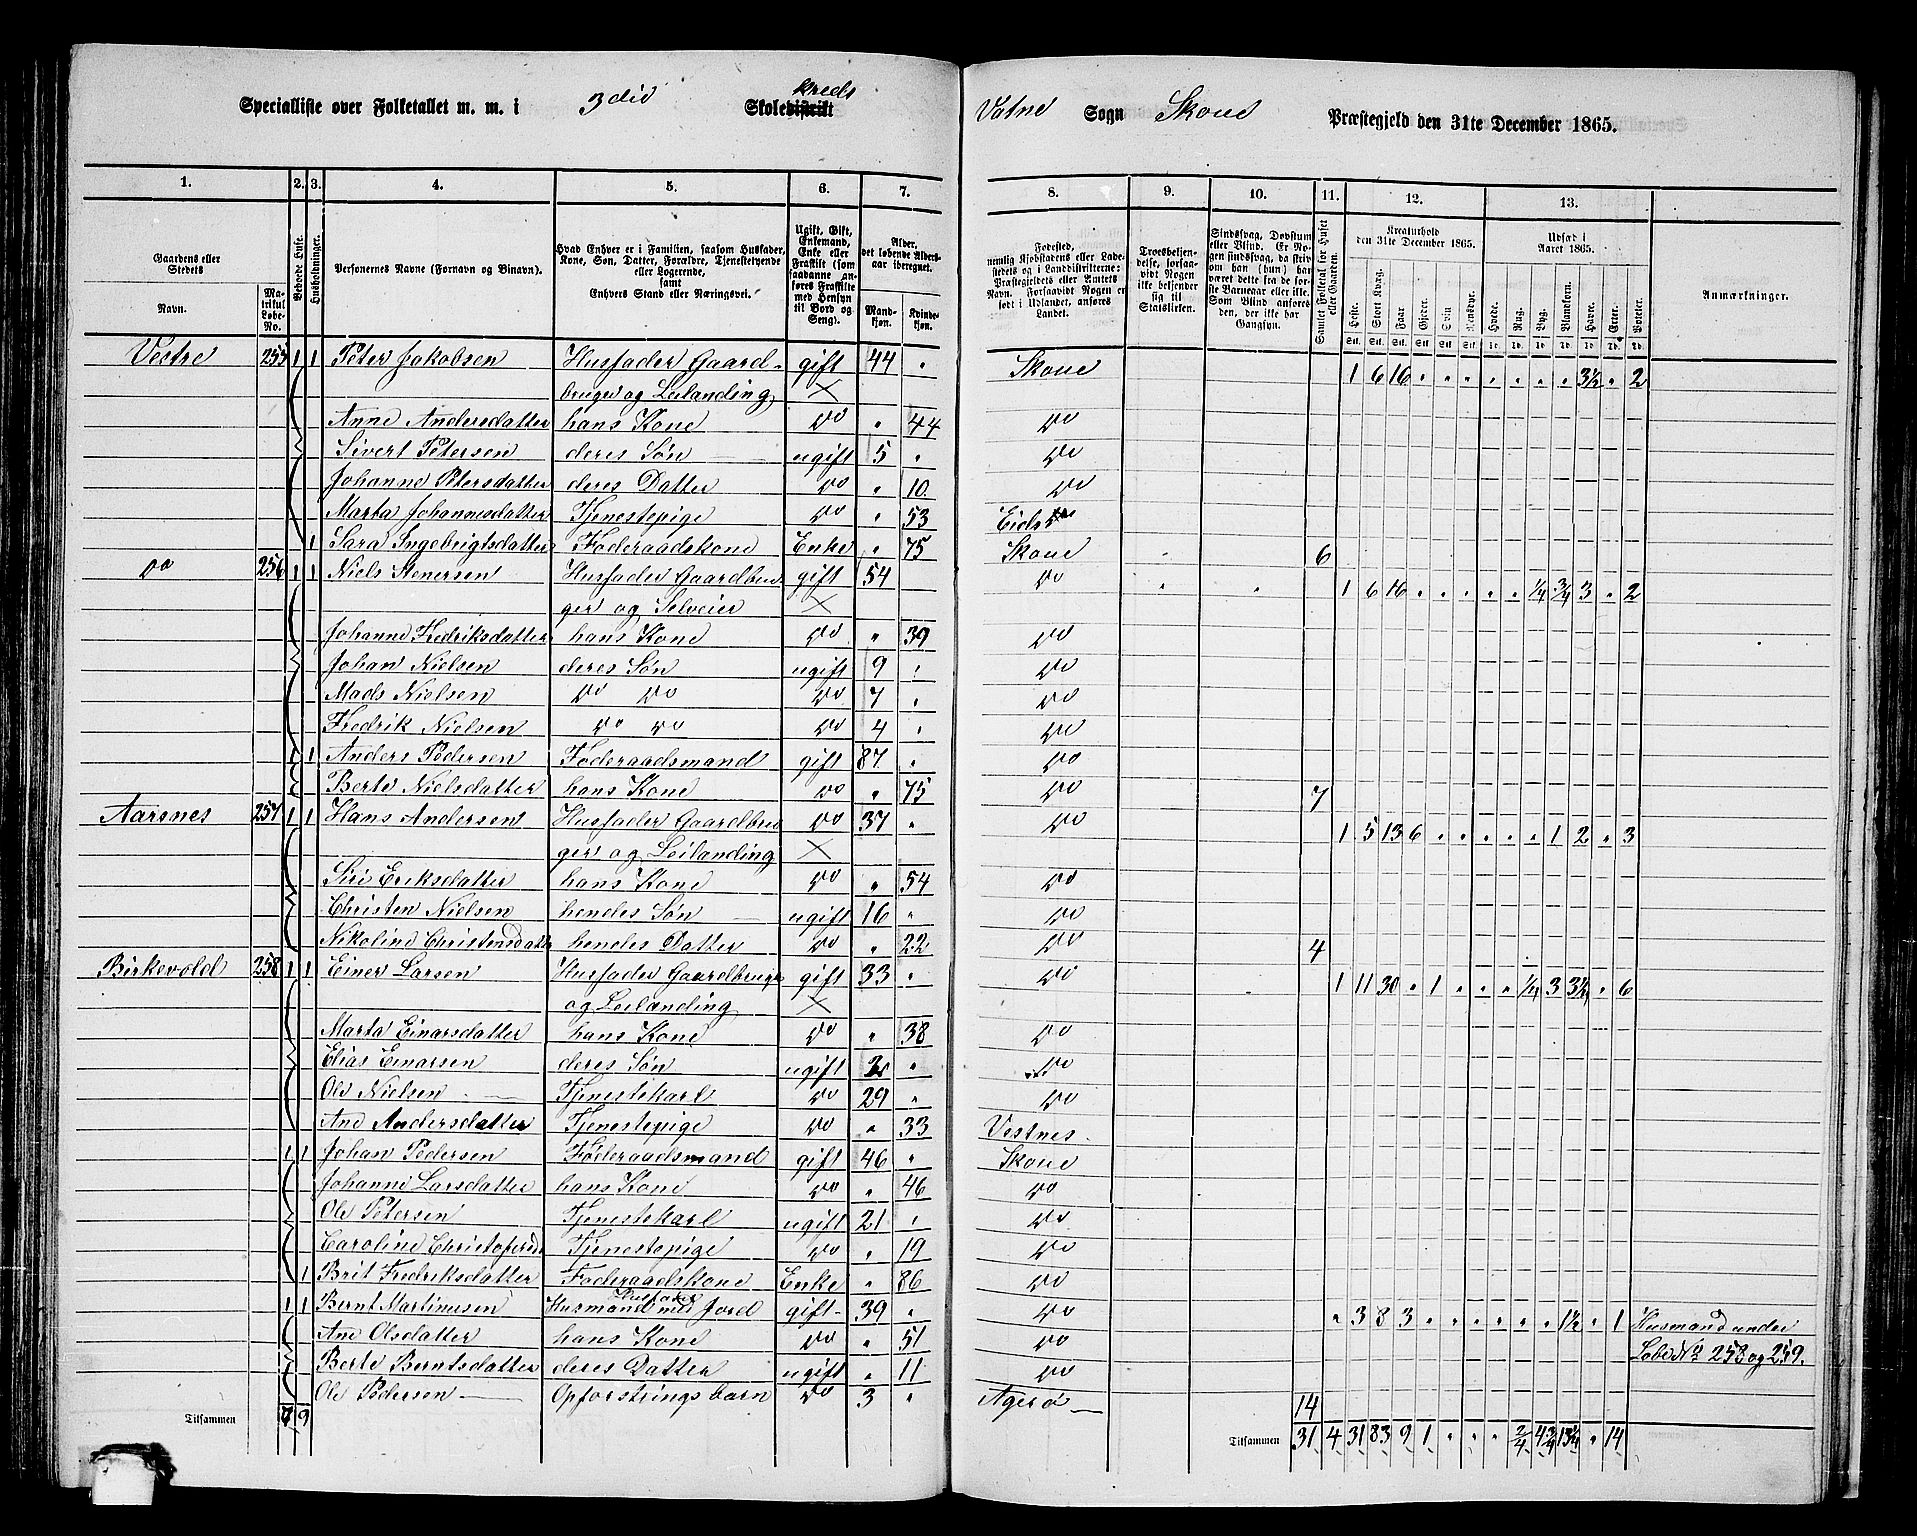 Specialliste over Folketallet m. m. i 3die Skoledistrikt kreds Vatne Sogn Skoue Præstegjeld den 31te December 1865.
1. 2. 3. 4. 5. 6. 7. 8. 9. 10. 11. 12. 13.
Gaardens eller Stedets
Navn. Matrikul Løbe-No.
Beboede Huse.
Husholdninger.
Personernes Navne (Fornavn og Binavn).
Hvad Enhver er i Familien, saasom Husfader, Kone, Søn, Datter, Forældre, Tjenestetyende eller Logerende, samt Enhvers Stand eller Næringsvei.
Ugift, Gift, Enkemand, Enke eller Fraskilt (som saadanne anføres Fraskilte med Hensyn til Bord og Seng).
Alder, det løbende Aldersaar iberegnet.
Mandkjøn. Kvindekjøn.
Fødested, nemlig Kjøbstadens eller Ladestedets og i Landdistrikterne: Præstegjeldets eller Amtets Navn. Forsaavidt Nogen er født i Udlandet, anføres Landet.
Troesbekjendelse, forsaavidt Nogen ikke bekjender sig til Statskirken.
Sindssvag, Døvstum eller Blind. Er Nogen sindssvag, da skrives om han (hun) har været dette fra de første Barneaar eller ikke. Som Blind anføres den, der ikke har Gangsyn.
Samlet Folketal for Huset eller Gaarden.
Kreaturhold den 31te December 1865.
Heste. Stort Kvæg. Faar. Gjeder. Sviin. Rensdyr.
Udsæd i Aaret 1865.
Hvede. Rug. Byg. Blandkorn. Havre. Erter. Poteter.
Anmærkninger.
Vestre 255 1 1 Peter Jakobsen Husfader Gaard- gift 44 " Skoue 1 6 16 " " " " " " " 3½ " 2
bruger og Leilænding ×
Anne Andersdatter hans Kone Do " 44 Do
Sivert Petersen deres Søn ugift 5 " Do
Johanne Petersdatter deres Datter Do " 10 Do
Marta Johannesdatter Tjenestepige Do " 53 Eids
1 Sara Ingebrigtsdatter Føderaadskone Enke " 75 Skoue 6
Do 256 1 1 Niels Stenersen Husfader Gaardbru gift 54 Do 1 6 16 " " " " " ¼ ¾ 3 " 2
ger og Selveier ×
Johanne Fredriksdatter hans Kone Do " 39 Do
Johan Nielsen deres Søn ugift 9 " Do
Mads Nielsen Do Do Do 7 " Do
Fredrik Nielsen Do Do Do 4 " Do
1 1 Anders Pedersen Føderaadsmand gift 87 " Do
Berte Nielsdatter hans Kone Do " 75 Do 7
Aarsnes 257 1 1 Hans Andersen Husfader Gaardbru Do 37 " Do 1 5 13 6 " " " " " 1 2 " 3
ger og Leilænding ×
Siri Eriksdatter hans Kone Do " 54 Do
Christen Nielsen hendes Søn ugift 16 " Do
Nikoline Christensdatter hendes Datter Do " 22 Do 4
Birkevold 258 1 1 Einer Larsen Husfader Gaardbruger gift 33 " Do 1 11 30 " 1 " " " ¼ 3 3¼ " 6
og Leilænding ×
Marta Einarsdatter hans Kone Do " 38 Do
Elias Einarsen deres Søn ugift " Do
Ole Nielsen Tjenestekarl Do 29 " Do
Ane Andersdatter Tjenestepige Do " 33 Vestnes
1 1 Johan Pedersen Føderaadsmand gift 46 " Skoue
Johanne Larsdatter hans Kone Do " 46 Do
Ole Petersen Tjenestekarl ugift 21 " Do
Caroline Christofersd Tjenestepige Do " 19 Do
1 Brit Fredriksdatter Føderaadskone Enke " 86 Do
1 1 Bernt Martinusen Husfader Husmand med Jord gift 39 " Do " 3 8 3 " " " " " " 1½ " 1 Husmand under
Ane Olsdatter hans Kone Do " 51 Do Løbe No 258 og 259.
Berte Berntsdatter deres Datter ugift " 11 Do
Ole Pedersen Opfostringsbarn Do 3 " Agerø 14
Tilsammen 7 9 Tilsammen 31 4 31 83 9 1 " " " 2/4 4¾ 13¼ " 14